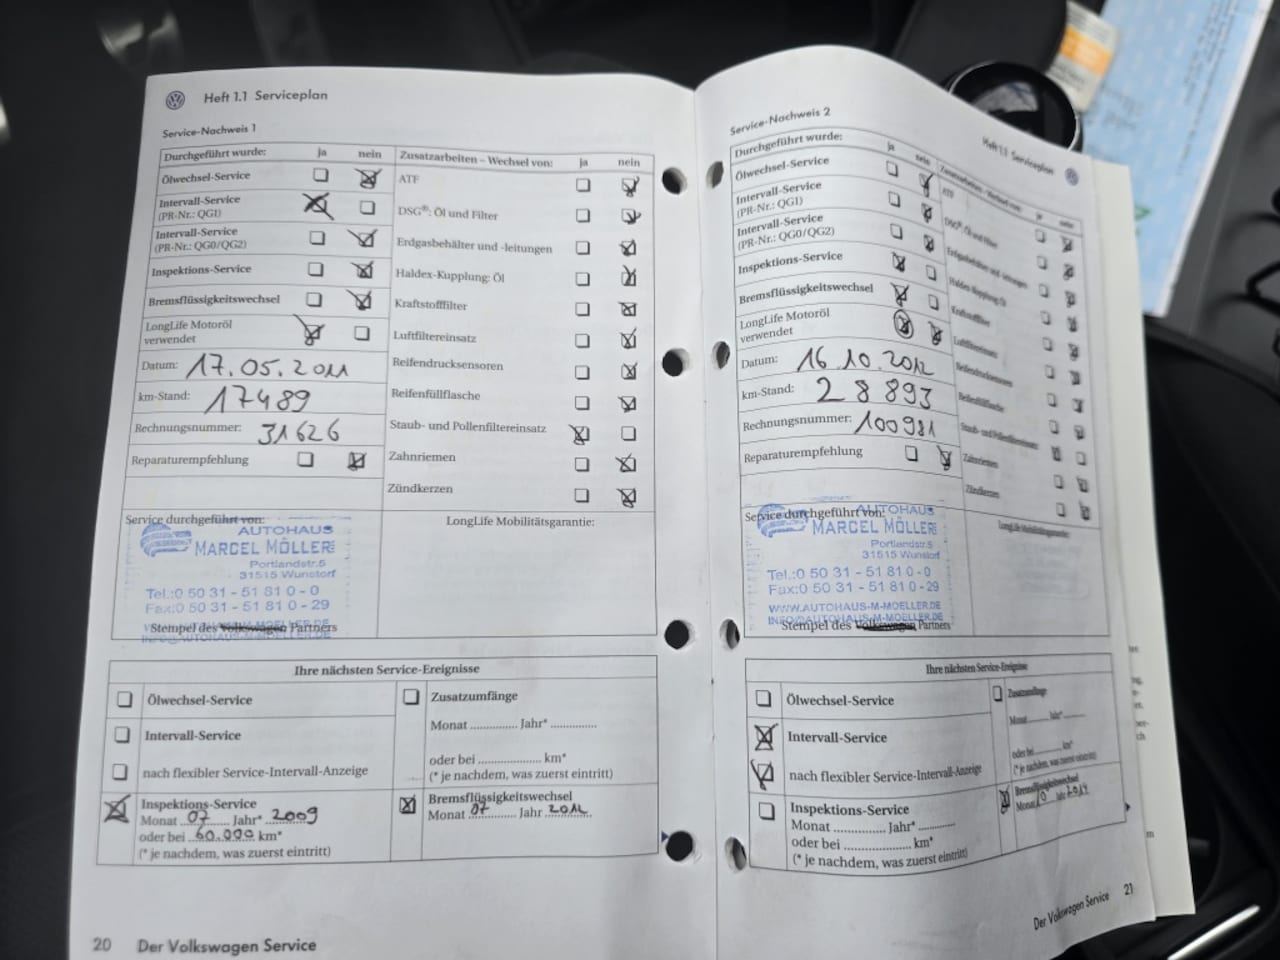 Heft 1.1 Serviceplan
Service-Nachweis 1
Durchgeführt wurde: ja nein
Ölwechsel-Service
Intervall-Service
(PR-Nr.: QG1)
Intervall-Service
(PR-Nr.: QG0/QG2)
Inspektions-Service
Bremsflüssigkeitswechsel
LongLife Motoröl
verwendet
Datum: 17.05.2011
km-Stand: 17489
Rechnungsnummer: 31626
Reparaturempfehlung
Zusatzarbeiten – Wechsel von: ja nein
ATF
DSG®: Öl und Filter
Erdgasbehälter und -leitungen
Haldex-Kupplung: Öl
Kraftstofffilter
Luftfiltereinsatz
Reifendrucksensoren
Reifenfüllflasche
Staub- und Pollenfiltereinsatz
Zahnriemen
Zündkerzen
Service durchgeführt von:
AUTOHAUS
MARCEL MÖLLER
Portlandstr.5
31515 Wunstorf
Tel.:0 50 31 - 51 81 0 - 0
Fax:0 50 31 - 51 81 0 - 29
Stempel des Volkswagen Partners
LongLife Mobilitätsgarantie:
Ihre nächsten Service-Ereignisse
Ölwechsel-Service
Intervall-Service
nach flexibler Service-Intervall-Anzeige
Inspektions-Service
Monat 07 Jahr* 2009
oder bei 60.000 km*
(* je nachdem, was zuerst eintritt)
Zusatzumfänge
Monat ............... Jahr* ...............
oder bei ..................... km*
(* je nachdem, was zuerst eintritt)
Bremsflüssigkeitswechsel
Monat 07 Jahr 2012
20 Der Volkswagen Service
Heft 1.1 Serviceplan
Service-Nachweis 2
Durchgeführt wurde: ja nein
Ölwechsel-Service
Intervall-Service
(PR-Nr.: QG1)
Intervall-Service
(PR-Nr.: QG0/QG2)
Inspektions-Service
Bremsflüssigkeitswechsel
LongLife Motoröl
verwendet
Datum: 16.10.2012
km-Stand: 28893
Rechnungsnummer: 100981
Reparaturempfehlung
Zusatzarbeiten – Wechsel von: ja nein
ATF
DSG®: Öl und Filter
Erdgasbehälter und -leitungen
Haldex-Kupplung: Öl
Kraftstofffilter
Luftfiltereinsatz
Reifendrucksensoren
Reifenfüllflasche
Staub- und Pollenfiltereinsatz
Zahnriemen
Zündkerzen
Service durchgeführt von:
AUTOHAUS
MARCEL MÖLLER
Portlandstr.5
31515 Wunstorf
Tel.:0 50 31 - 51 81 0 - 0
Fax:0 50 31 - 51 81 0 - 29
WWW.AUTOHAUS-M-MOELLER.DE
INFO@AUTOHAUS-M-MOELLER.DE
Stempel des Volkswagen Partners
LongLife Mobilitätsgarantie:
Ihre nächsten Service-Ereignisse
Ölwechsel-Service
Intervall-Service
nach flexibler Service-Intervall-Anzeige
Inspektions-Service
Monat ............... Jahr* ...............
oder bei ..................... km*
(* je nachdem, was zuerst eintritt)
Zusatzumfänge
Monat ............... Jahr* ...............
oder bei ............... km*
(* je nachdem, was zuerst eintritt)
Bremsflüssigkeitswechsel
Monat 10 Jahr 2014
Der Volkswagen Service 21